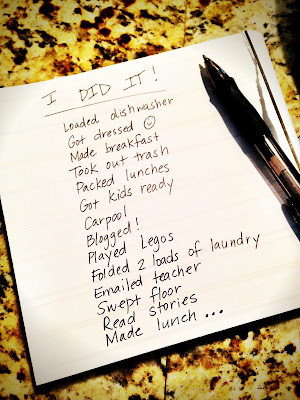 I DID IT!
Loaded dishwasher
Got dressed ☺
Made breakfast
Took out trash
Packed lunches
Got kids ready
Carpool
Blogged!
Played Legos
Folded 2 loads of laundry
Emailed teacher
Swept floor
Read stories
Made lunch ...